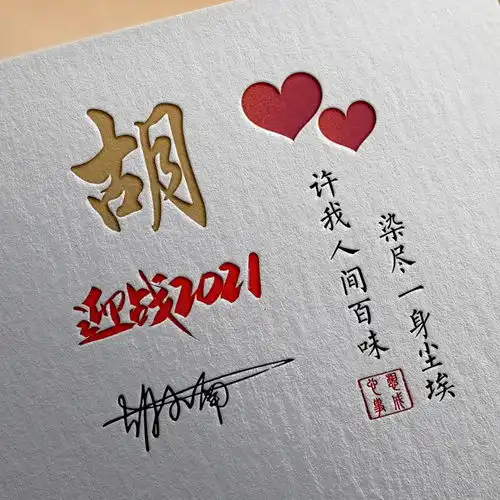 胡
迎战2021
染尽一身尘埃
许我人间百味
心想事成